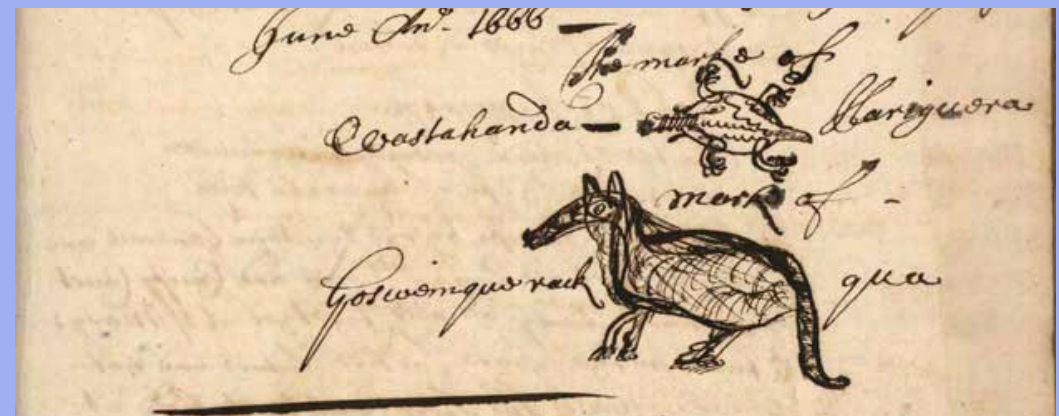 June An.º 1666
The marke of
Wastahanda Hariguera
mark of
Goswemquerack qua